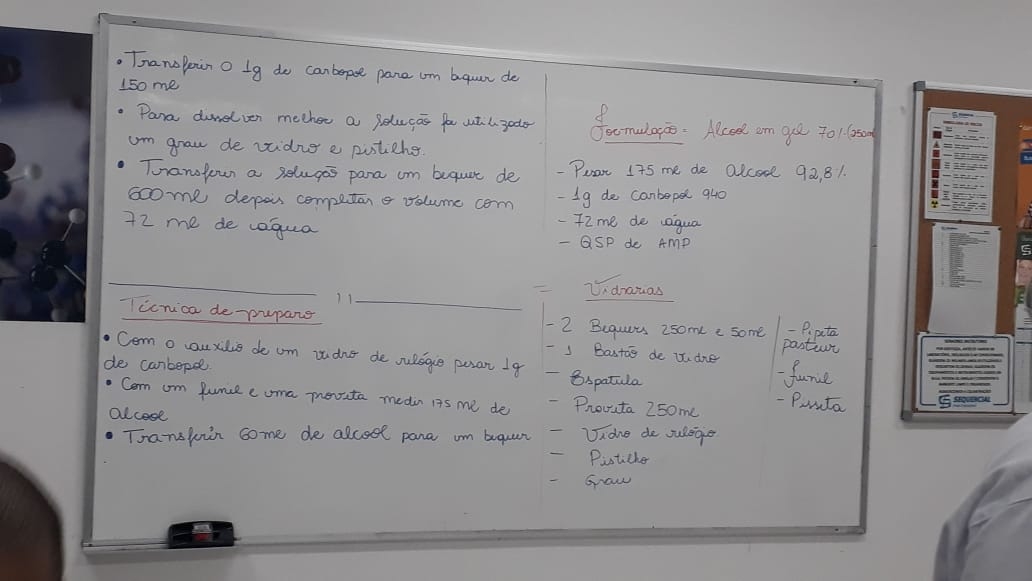 • Transferir o 1g de carbopol para um bequer de
150 ml
• Para dissolver melhor a solução foi utilizado
um grau de vidro e pistilho.
• Transferir a solução para um bequer de
600 ml depois completar o volume com
72 ml de água
Técnica de preparo
• Com o auxilio de um vidro de relógio pesar 1g
de carbopol.
• Com um funil e uma proveta medir 175 ml de
alcool
• Transferir 60ml de alcool para um bequer
Formulação = Alcool em gel 70% (250ml
- Pesar 175 ml de alcool 92,8%
- 1g de carbopol 940
- 72 ml de água
- QSP de AMP
= Vidrarias
- 2 Bequers 250ml e 50ml
- 1 Bastão de vidro
- Espatula
- Proveta 250ml
- Vidro de relógio
- Pistilho
- Grau
- Pipeta
pasteur
- Funil
- Pisseta
SEQUENCIAL